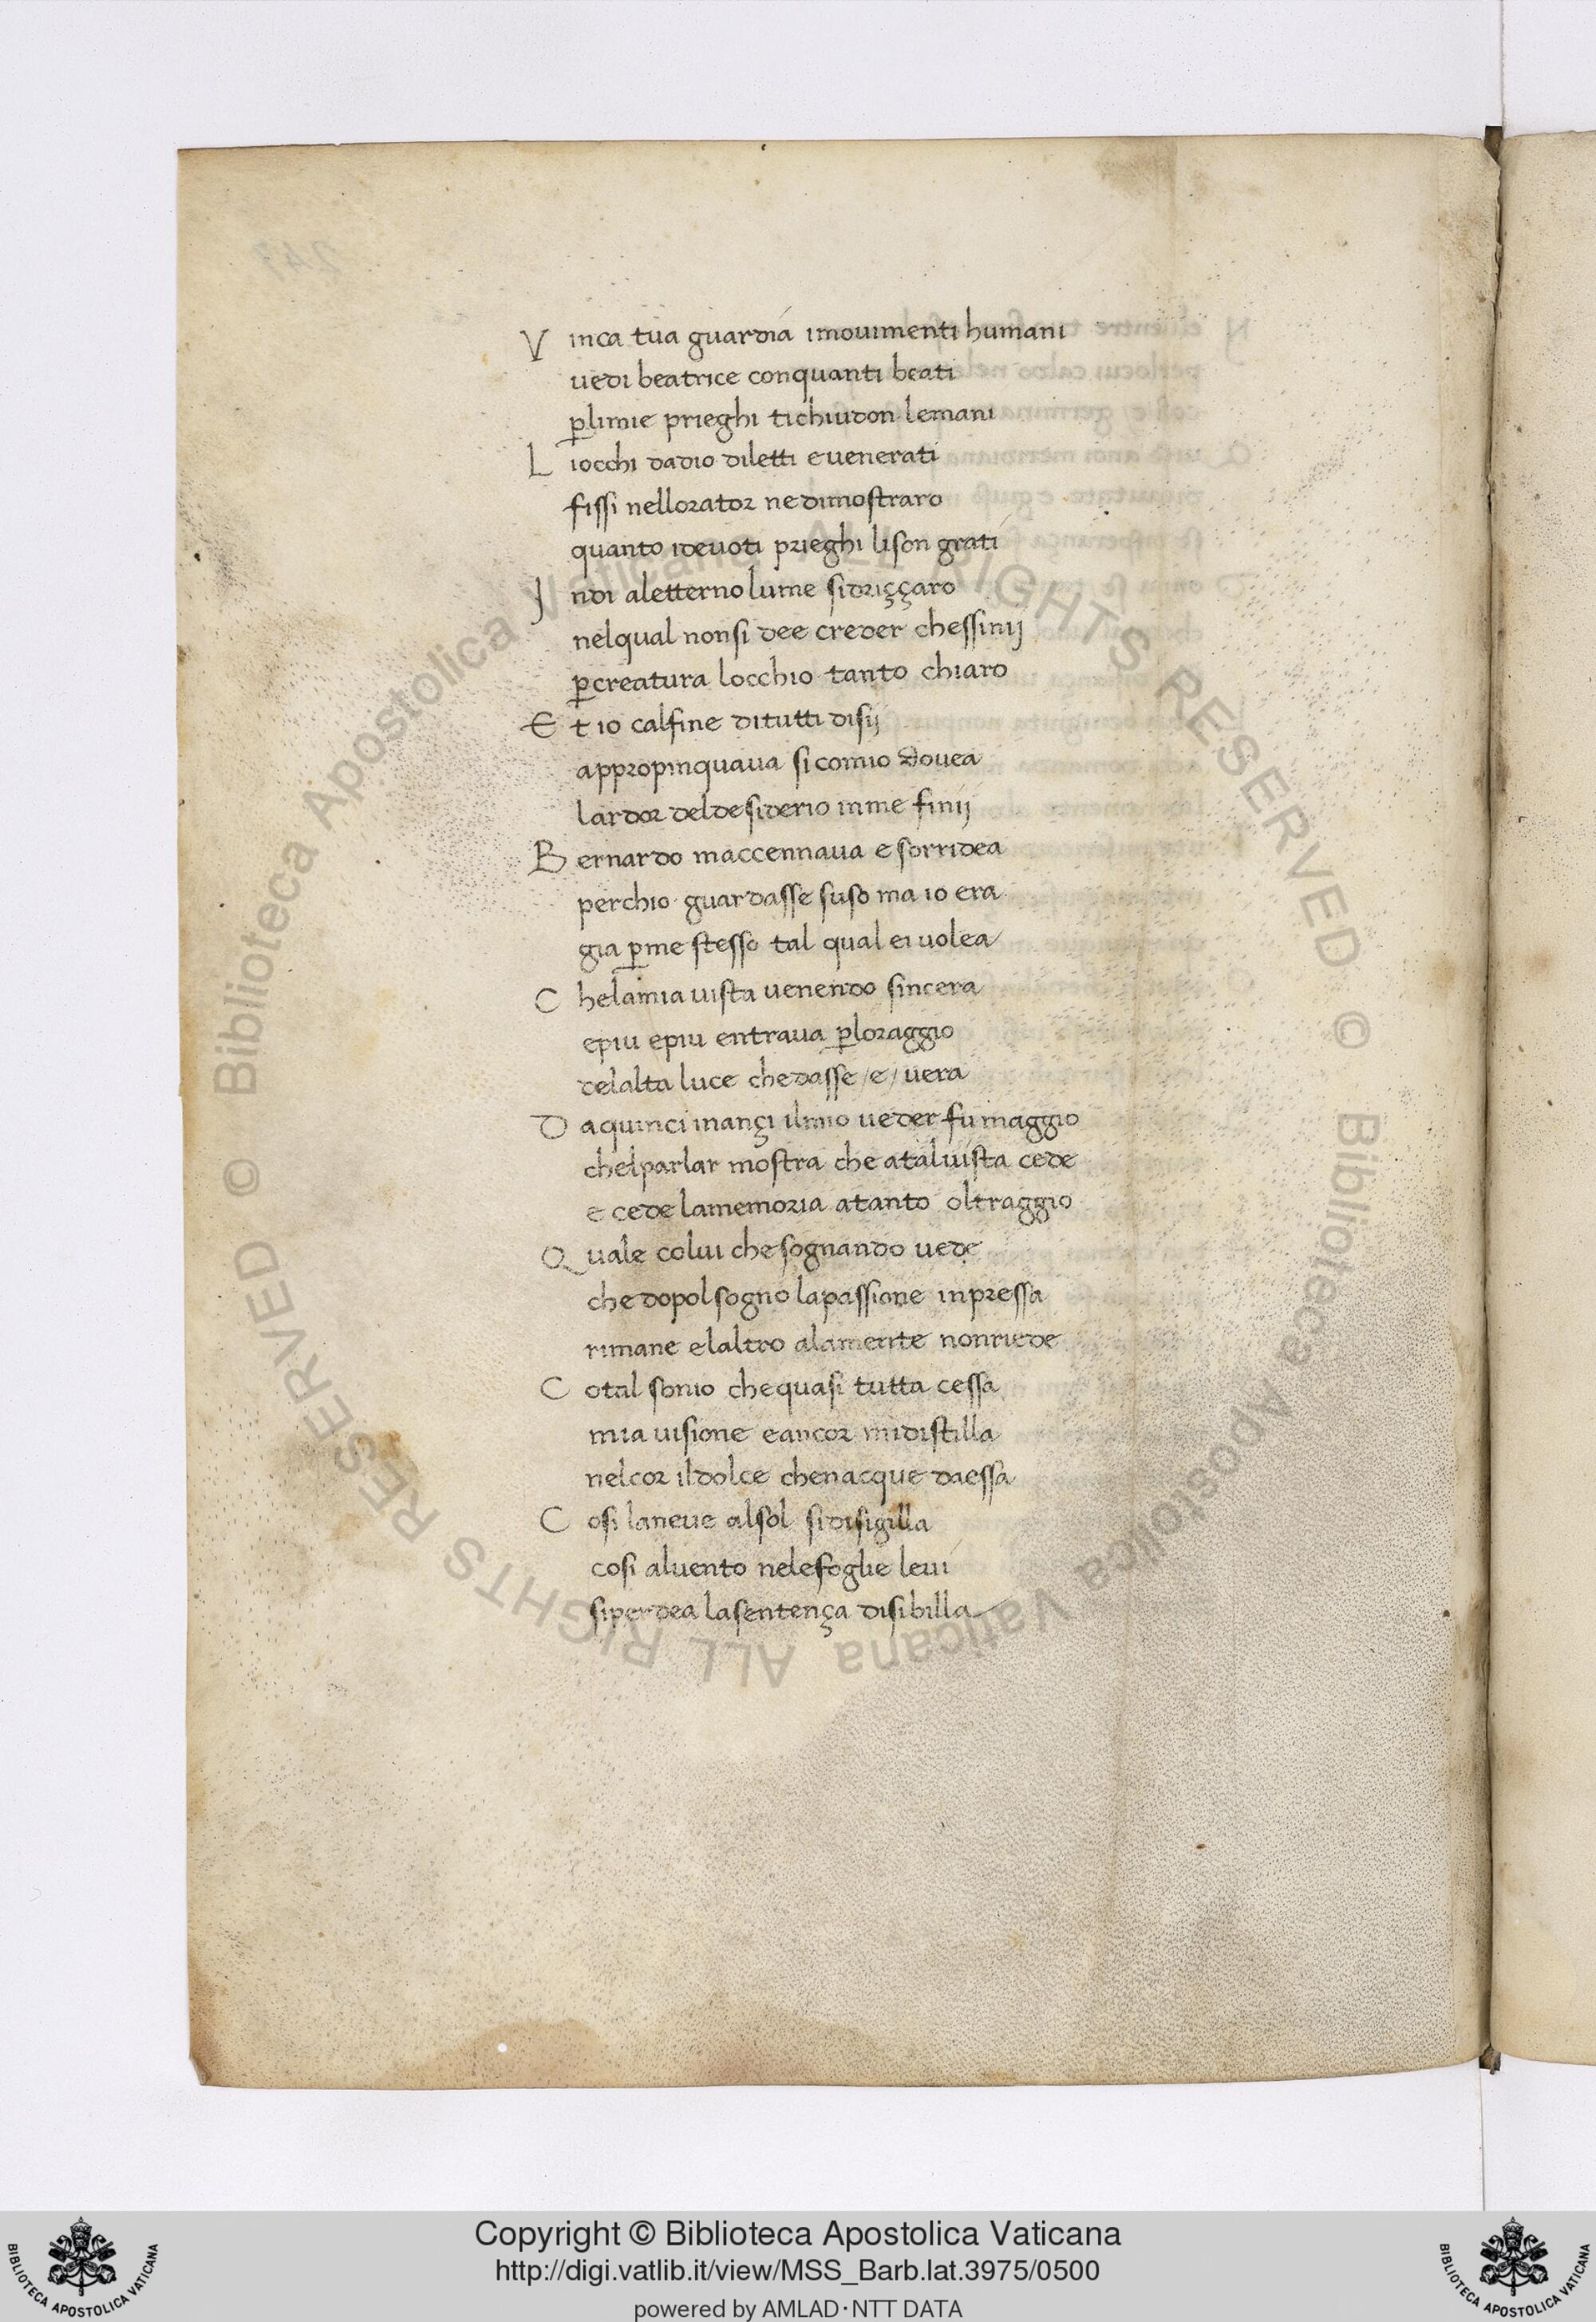 V inca tua guardia i mouimenti humani
uedi beatrice conquanti beati
ꝑlimie prieghi tichiudon lemani
L iocchi dadio diletti euenerati
fissi nellorator nedimostraro
quanto ideuoti prieghi lison grati
J ndi aletterno lume sidriççaro
nelqual nonsi dee creder chessinij
ꝑcreatura locchio tanto chiaro
E t io calfine ditutti disij
appropinquaua sicomio douea
lardor deldesiderio inme finij
B ernardo maccennaua e sorridea
perchio guardasse suso ma io era
gia ꝑme stesso tal qual ei uolea
C helamia uista uenendo sincera
epiu epiu entraua ꝑloraggio
delalta luce chedasse /e/ uera
D aquinci inançi ilmio ueder fu maggio
chelparlar mostra che ataluista cede
e cede lamemoria atanto oltraggio
Q uale colui che sognando uede
che dopol sogno lapassione inpressa
rimane elaltro alamente nonriede
C otal sonio chequasi tutta cessa
mia uisione eancor midistilla
nelcor ildolce chenacque daessa
C osi laneue alsol sidisigilla
cosi aluento nelefoglie leui
siperdea lasentença disibilla
Copyright © Biblioteca Apostolica Vaticana
http://digi.vatlib.it/view/MSS_Barb.lat.3975/0500
powered by AMLAD·NTT DATA
BIBLIOTECA APOSTOLICA VATICANA
BIBLIOTECA APOSTOLICA VATICANA
Biblioteca Apostolica Vaticana ALL RIGHTS RESERVED ©
Biblioteca Apostolica Vaticana ALL RIGHTS RESERVED ©
247